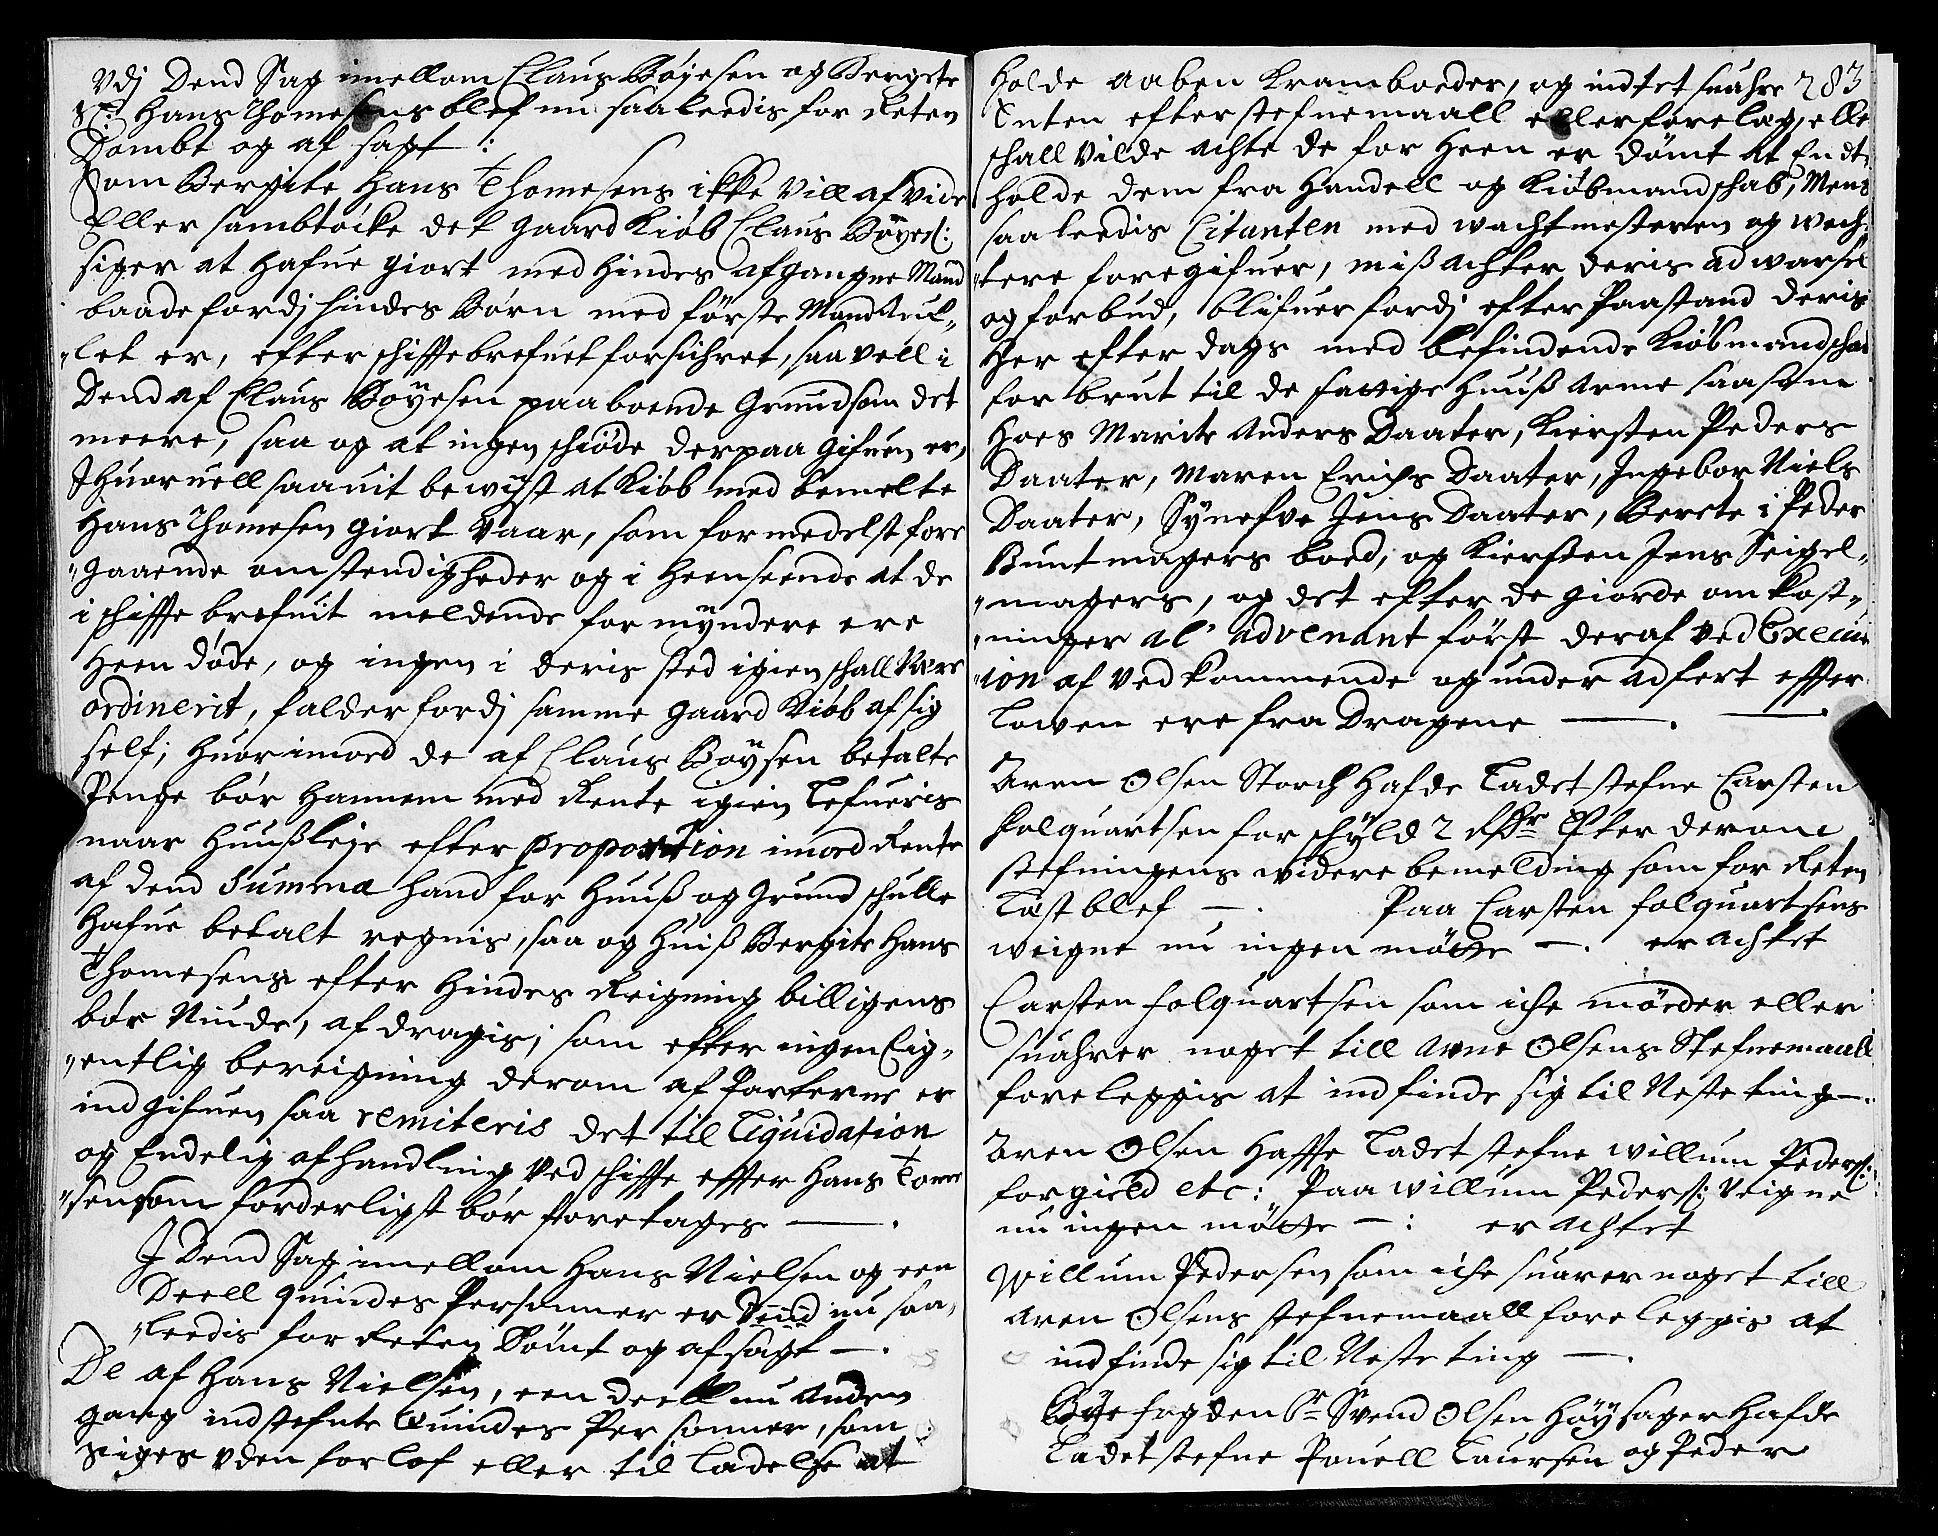 Vdj Dend Sag imellom Claus Böjesen og Bergete
Hans Thomesens blef nu saaleedis for Reten
Dömbt og af sagt :
Som Bergite Hans Thomesens ikke Vill af vide
Eller sambtöcke det gaard Kiöb Claus Böyes:
siger at hafue giort med Hindes afgangne Mand
baade fordj hindes Börn med förste Mand Aufl„
„let er, efter schifftebrefuet forsichret, saa vell i
Dend af Claus Böyesen paaboende Grund som det
meere, saa og at ingen schiöde derpaa gifuen er,
Ihuoruell saauit bewijst at Kiöb med bemelte
Hans Thomesen giort Vaar, som formedelst fore
„gaaende omstendigheder og i Heenseende at de
i schiffte brefuit meldende formyndere ere
Heen döde, og ingen i deris sted igien schall Være
ordinerit, falder fordj samme gaard Kiöb af sig
self; Huorimod de af Claus Böysen betalte
Penge bör Hannem med Rente igien lefueris
naar Huußleje efter proportion imod Rente
af dend Summa hand for Huuß og Grund schulle
Hafue betalt regnis, saa og Huiß Bergite Hans
Thomesens efter Hindes Reigning billigens
bör Niude, af dragis; som efter ingen Eig„
„entlig bereigning derom af Parterne er
ind gifuen saa remiteris det til Liquidation
og Endelig afhandling Ved schiffte effter Hans Tome
„sen som forderligst bör foretages —.
I Dend Sag imellom Hans Nielsen og een
Deell quindes Personner er Vind nu saa„
„leedis for Reten Dömt og afsagt —.
De af Hans Nielsen, een deell nu Anden
gang indstefnte Quindes Personner, som
siges vden forlof eller til ladelse at
holde aaben kramboeder, og indtet suahre 283
Enten efter stefnemaall eller forelag, elle
schall Vilde achte de for Heen er dömt at Endt
holde dem fra Handell og Kiöbmandschab, Mens
saaleedis Citanten med wachtmesteren og wech„
„tere foregifuer, mißachter deris adwarsel
og forbud, blifuer fordj efter Paastand deris
Her efter dags med befindende Kiöbmandschab
forbrut til de fattige Huuß Arme saasom
Hoes Marite Anders Daater, Kiersten Peders
Daater, Maren Erichs Daater, Ingebor Niels
Daater, Synefve Jens Daater, Berete i Peder
Buntmagers boed, og Kiersten Jens Seigel„
„magers, og det efter de giorde omkost„
„ninger al' advenant först deraf Ved Execu
„tion af Vedkommende og under adfert effter
lowen ere fra Dragene —. —.
Aren Olsen Storch Hafde Ladet stefne Carsten
folquartsen for schyld 2 Rdr Efter derom
stefningens widere bemelding som for Reten
Læst blef —. Paa Carsten folquartsens
weigne nu ingen mötte —. er achtet
Carsten folquartsen som iche mörder eller
suahrer noget till Arne Olsens Stefnemaall
foreleggis at indfinde sig til Neste ting —.
Aren Olsen Haffe Ladet stefne willum Peders:
for gield etc: Paa willum Peders: Veigne
nu ingen mötte —: er achtet
Willum Pedersen som iche suarer noget till
Aren Olsens stefnemaall foreleggis at
indfinde sig til Neste ting —.
Byefogden Sr Svend Olsen Höysager Hafde
Ladet stefne Pouell Laursen og Peder